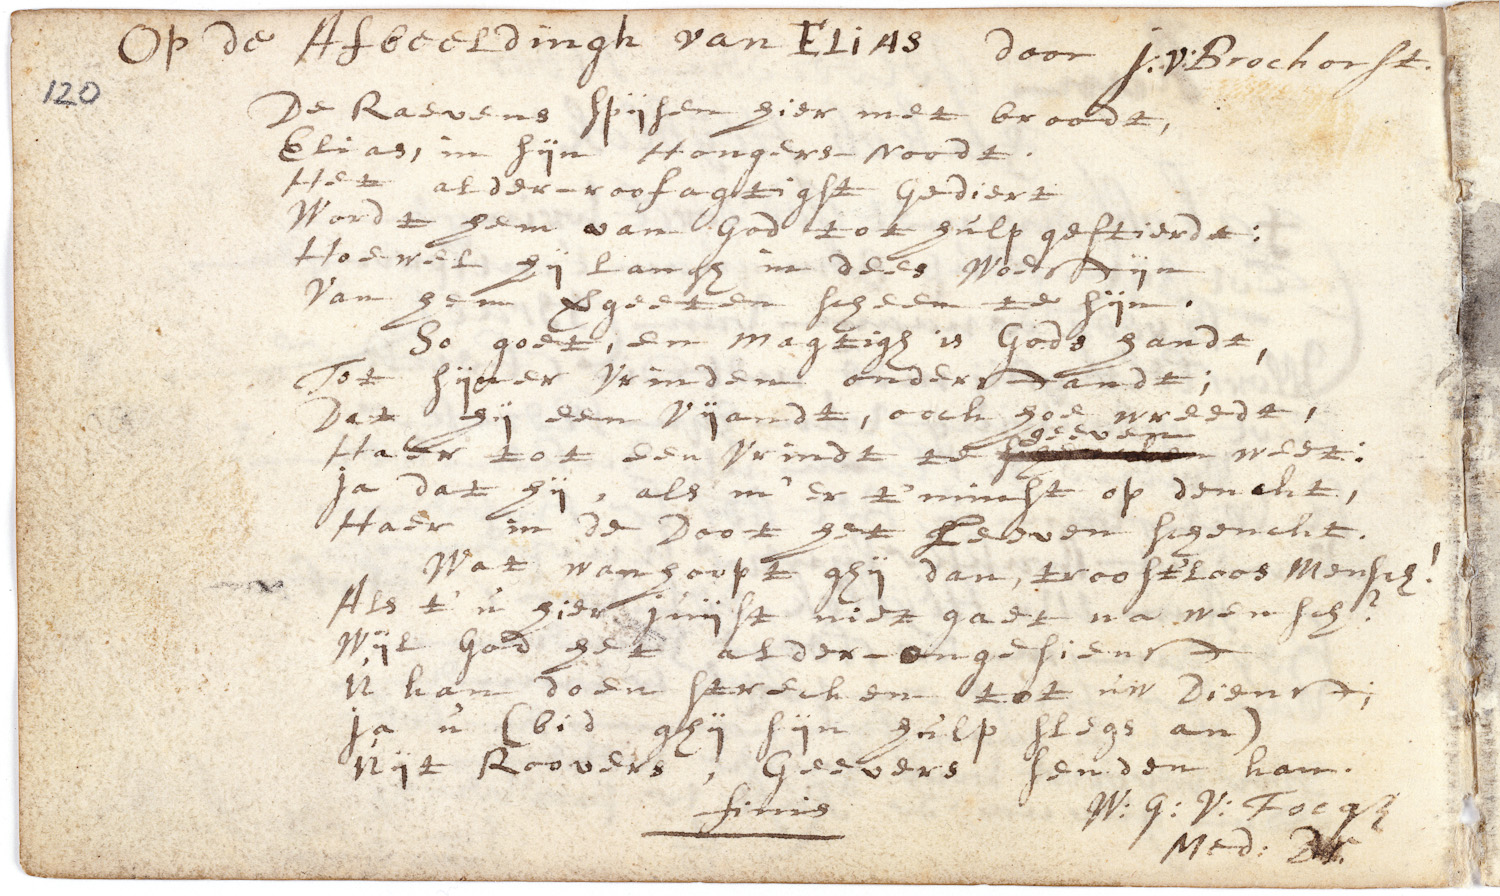 Op de Afbeeldingh van ELIAS door J: V: Brochorst.
120
De Raevens spijsen hier met broodt,
Elias, in sijn Hongers-Noodt.
Het alder-roofagtigst Gediert
Wordt hem van God tot hulp gestierdt:
Hoewel hij lansch in dees Woestijn
Van hem vgeeten scheen te sijn.
So goet, en magtigh is Gods handt,
Tot sijner Vrinden onderstandt;
Dat hij een Vijandt, oock hoe wreedt,
geeven
Haer tot een Vrindt te weet:
Ja dat hij, als m'er t'minst op denckt,
Haer in de Doot het Leeven schenckt.
Wat wanhoopt ghij dan, troost'loos Mensch!
Als t' u hier juijst niet gaet na wensch?
Wijl God het alder-ongesienst
U kan doen strecken tot uw Dienst;
Ja u (bid ghij sijn hulp slegs an)
Uijt Roovers, Geevers senden kan.
finis
W: G: V: Focqh
Med: Dr.